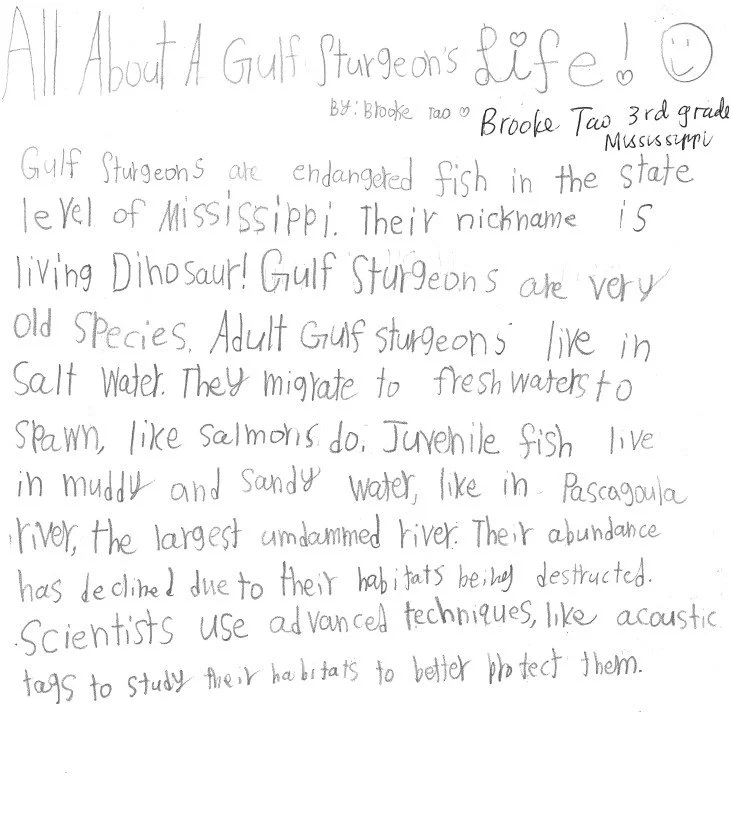 All About A Gulf Sturgeon's Life!
By: Brooke Tao Brooke Tao 3rd grade
Mississippi
Gulf Sturgeons are endangered fish in the state
level of Mississippi. Their nickname is
living Dinosaur! Gulf Sturgeons are very
old species. Adult Gulf sturgeons live in
Salt Water. They migrate to fresh waters to
spawn, like salmons do. Juvenile fish live
in muddy and sandy water, like in Pascagoula
river, the largest umdammed river. Their abundance
has declined due to their habitats being destructed.
Scientists use advanced techniques, like acoustic
tags to study their habitats to better protect them.